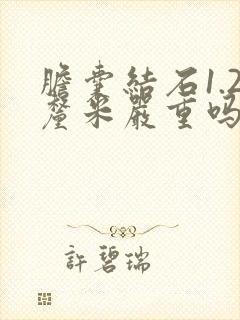 膽囊結石1.2
釐米嚴重吗
許碧瑞